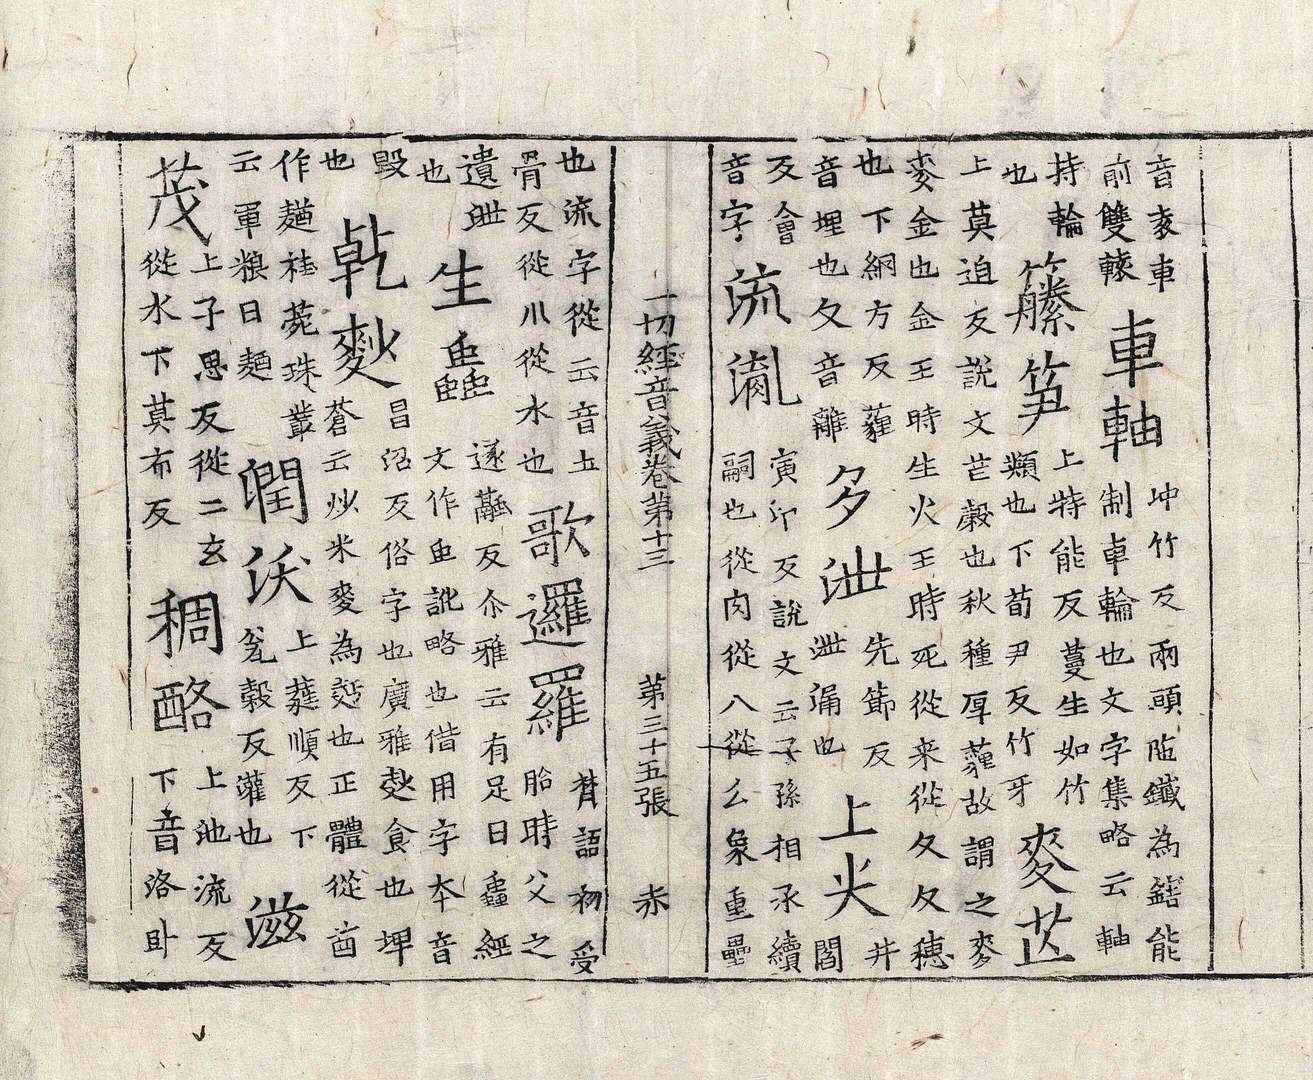 音亥車前雙轅
車軸
冲竹反兩頭陁鐵為鎋能
制車輪也文字集略云軸
持輪
也
籐笋
上特能反蔓生如竹
類也下荀尹反竹牙
麥芒
上莫迫反說文芒穀也秋種厚薶故謂之麥
麥金也金王時生火王時死從来從夂夂穗
也下網方反薶
音埋也夂音雖
多泄
先節反
泄漏也
上尖
井
閻
反會
音字
流胤
寅印反說文云子孫相承續
嗣也從肉從八從么象重壘
一切經音義卷第十三 第三十五張 赤
也流字從云音土
骨反從川從水也
歌邏羅
梵語初受
胎時父之
遺泄
也
生蟲
逐融反尒雅云有足曰蟲經
文作虫訛略也借用字本音
毀
也
乾麨
昌沼反俗字也廣雅麨食也埤
蒼云炒米麥為麨也正體從酋
作䴬桂菀珠叢
云軍粮曰䴬
潤沃
上蕤順反下
瓮穀反灌也
滋
茂
上子思反從二玄
從水下莫布反
稠酪
上池流反
下音洛卧